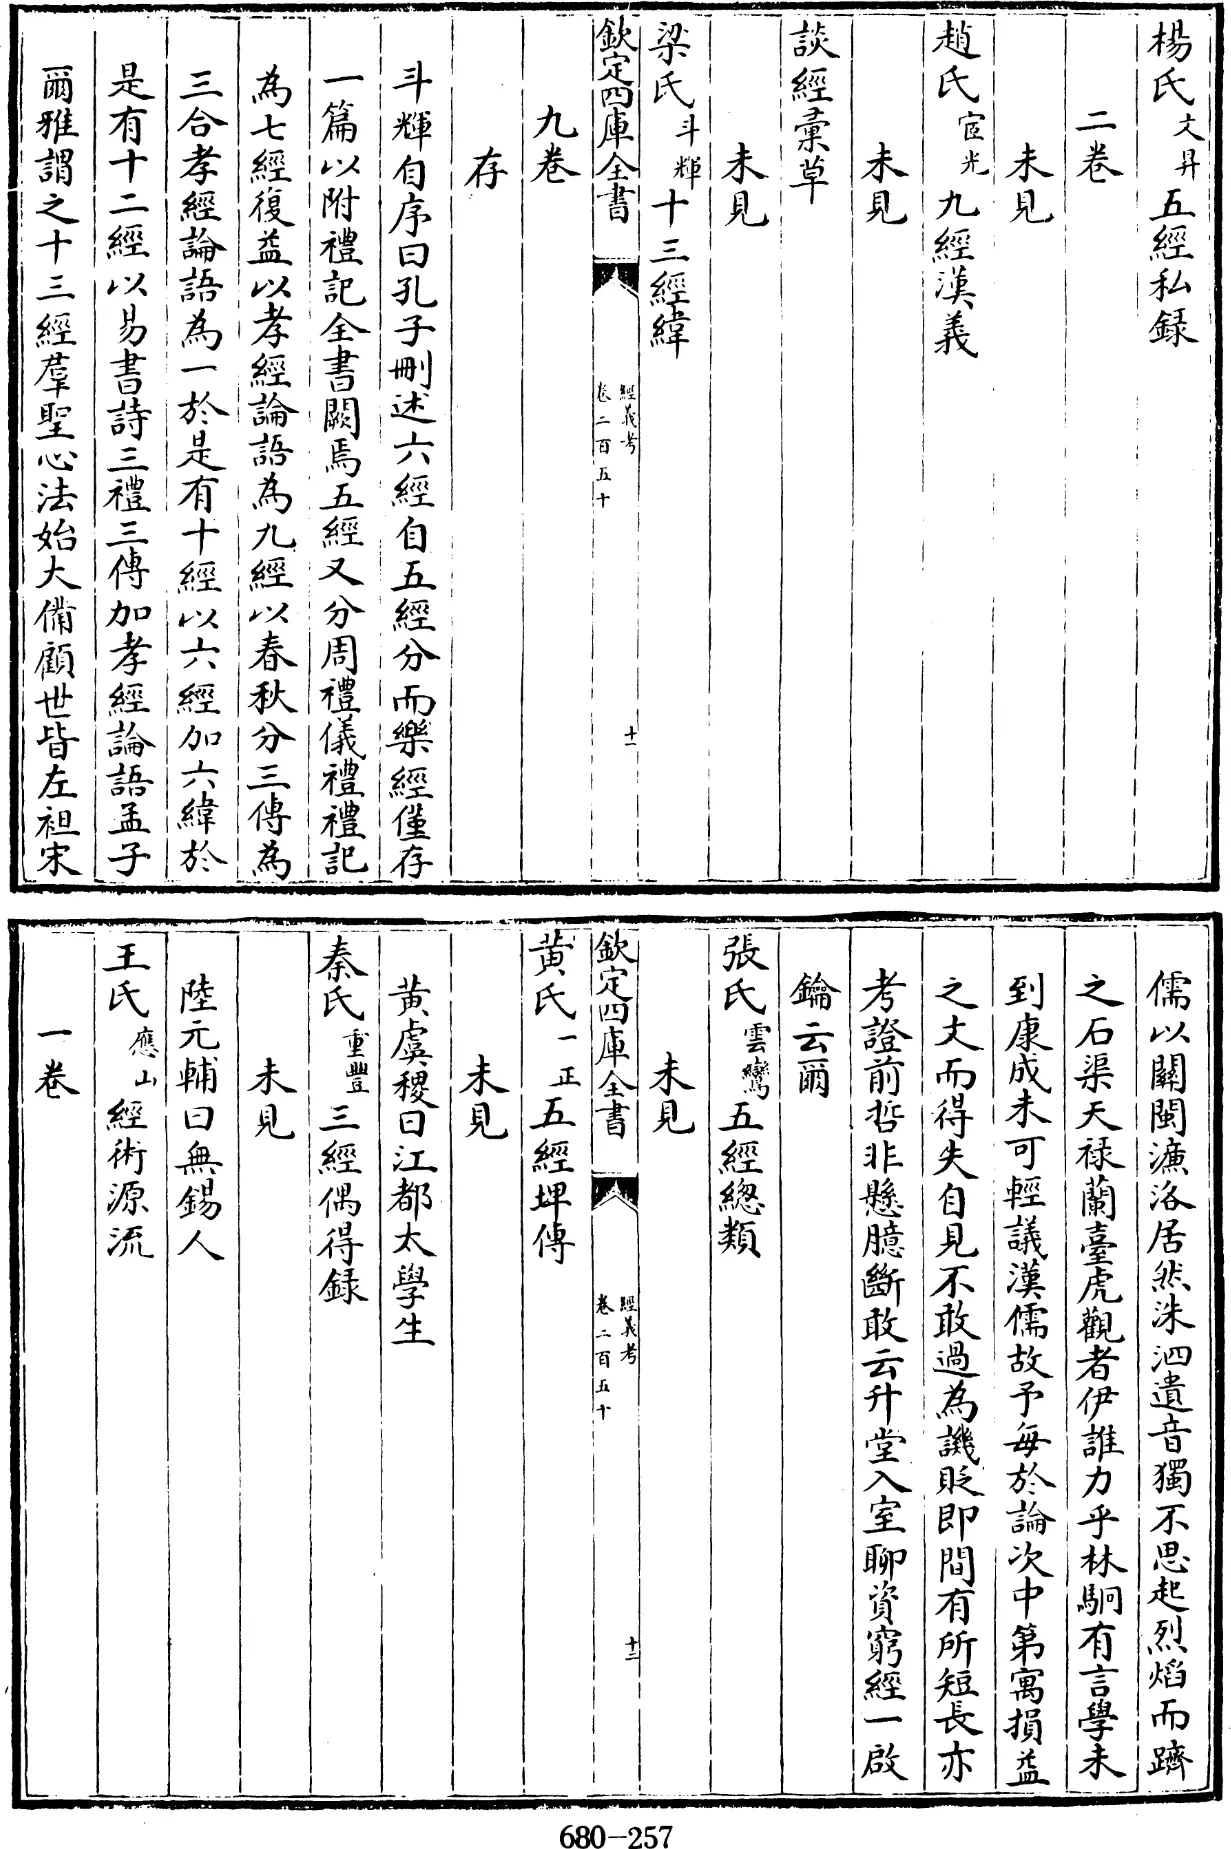 楊氏文昇五經私録
二卷
未見
趙氏宧光九經漢義
未見
談經彙草
未見
梁氏斗輝十三經緯
欽定四庫全書
經義考
卷二百五十
十一
九卷
存
斗輝自序曰孔子刪述六經自五經分而樂經僅存
一篇以附禮記全書闕焉五經又分周禮儀禮禮記
為七經復益以孝經論語為九經以春秋分三傳為
三合孝經論語為一於是有十經以六經加六緯於
是有十二經以易書詩三禮三傳加孝經論語孟子
爾雅謂之十三經羣聖心法始大備顧世皆左袒宋
儒以關閩濂洛居然洙泗遺音獨不思起烈焰而躋
之石渠天禄蘭臺虎觀者伊誰力乎林駉有言學未
到康成未可輕議漢儒故予每於論次中第寓損益
之文而得失自見不敢過為譏貶即間有所短長亦
考證前哲非懸臆斷敢云升堂入室聊資窮經一啟
鑰云爾
張氏雲鸞五經總類
未見
欽定四庫全書
經義考
卷二百五十
十二
黄氏一正五經埤傳
未見
黄虞稷曰江都太學生
秦氏重豐三經偶得録
未見
陸元輔曰無錫人
王氏應山經術源流
一卷
680-257